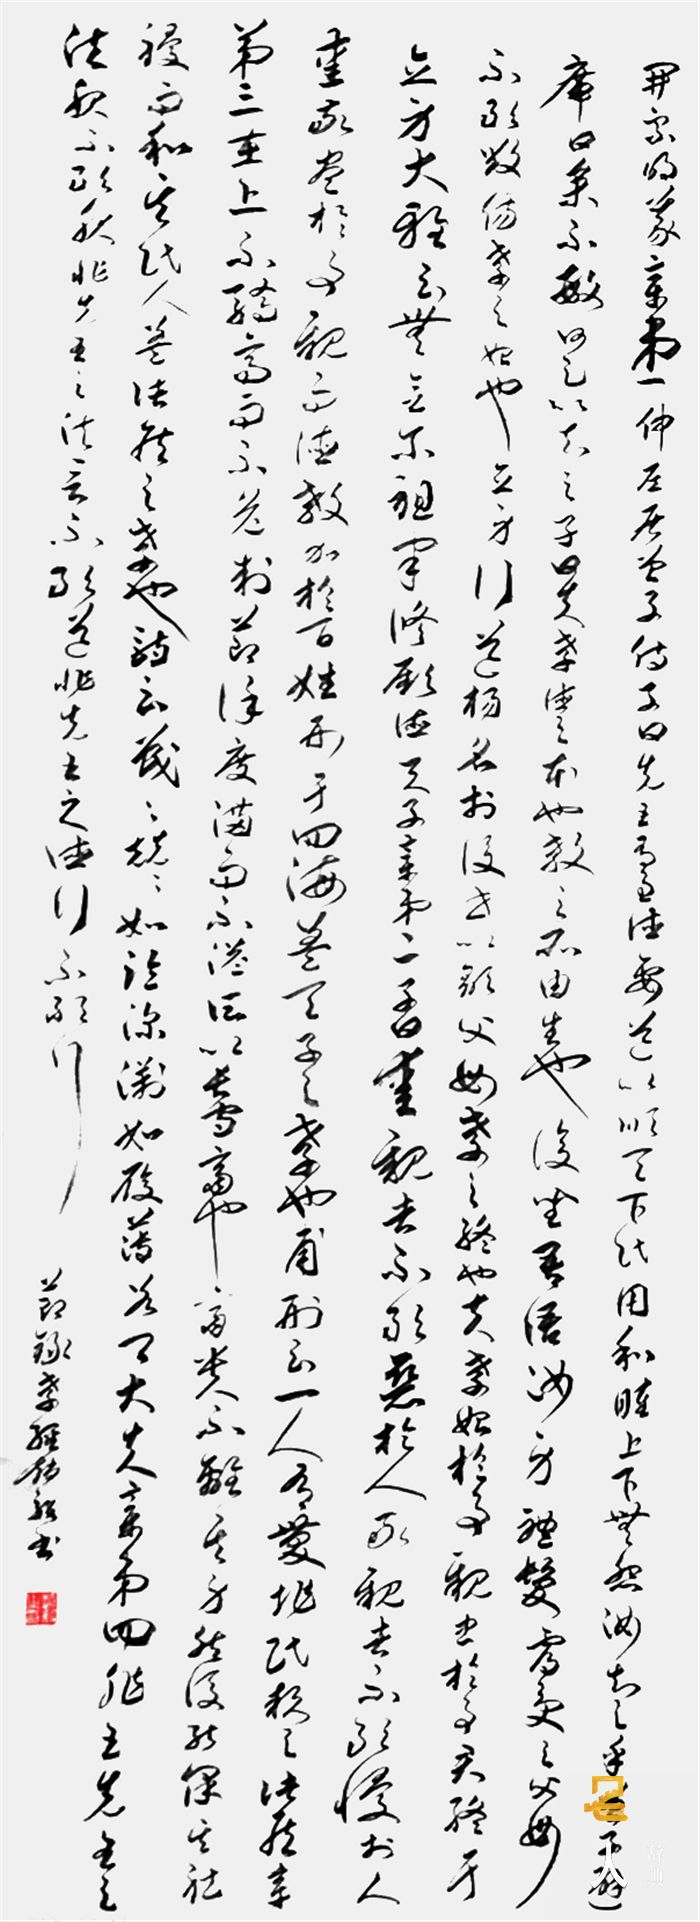 開宗明義章第一仲尼居曾子侍子曰先王有至德要道以順天下民用和睦上下無怨汝知之乎曾子避
席曰參不敏何足以知之子曰夫孝德之本也教之所由生也復坐吾語汝身體髮膚受之父母
不敢毀傷孝之始也立身行道揚名於後世以顯父母孝之終也夫孝始於事親忠於事君終于
立身大雅云無念爾祖聿修厥德天子章第二子曰愛親者不敢惡於人敬親者不敢慢於人
愛敬盡於事親而德教加於百姓刑于四海蓋天子之孝也甫刑云一人有慶兆民賴之諸侯章
第三在上不驕高而不危制節謹度滿而不溢所以長守富也富貴不離其身然後能保其社
稷而和其民人蓋諸侯之孝也詩云戰々兢々如臨深淵如履薄冰卿大夫章第四非王先王之
法服不敢服非先王之法言不敢道非先王之德行不敢行
節錄孝經書
人
辞典